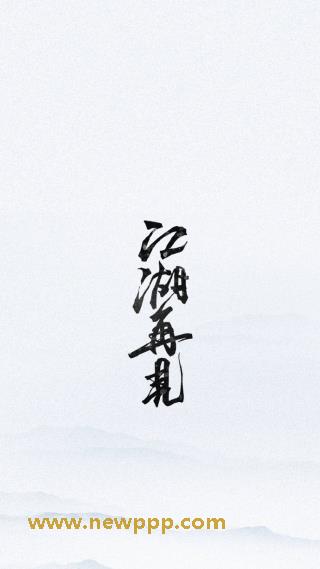 江湖再見
www.newppp.com